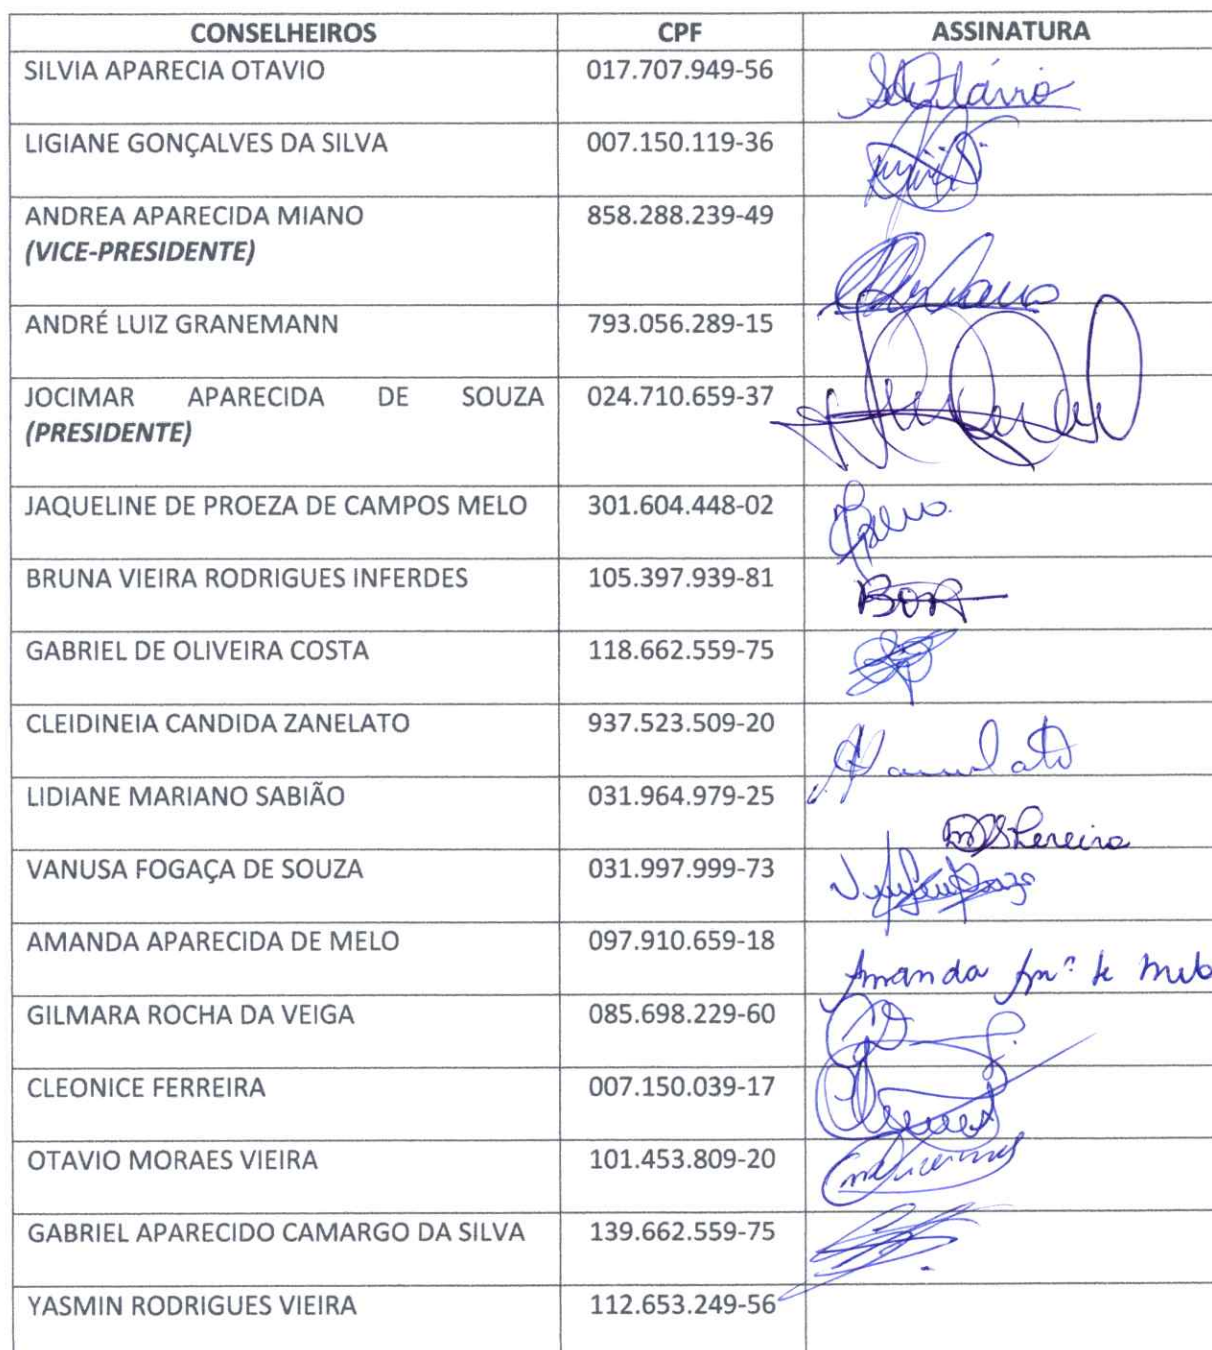 CONSELHEIROS CPF ASSINATURA
SILVIA APARECIA OTAVIO 017.707.949-56
LIGIANE GONÇALVES DA SILVA 007.150.119-36
ANDREA APARECIDA MIANO 858.288.239-49
(VICE-PRESIDENTE)
ANDRÉ LUIZ GRANEMANN 793.056.289-15
JOCIMAR APARECIDA DE SOUZA 024.710.659-37
(PRESIDENTE)
JAQUELINE DE PROEZA DE CAMPOS MELO 301.604.448-02
BRUNA VIEIRA RODRIGUES INFERDES 105.397.939-81
GABRIEL DE OLIVEIRA COSTA 118.662.559-75
CLEIDINEIA CANDIDA ZANELATO 937.523.509-20
LIDIANE MARIANO SABIÃO 031.964.979-25
VANUSA FOGAÇA DE SOUZA 031.997.999-73
AMANDA APARECIDA DE MELO 097.910.659-18
Amanda
GILMARA ROCHA DA VEIGA 085.698.229-60
CLEONICE FERREIRA 007.150.039-17
OTAVIO MORAES VIEIRA 101.453.809-20
GABRIEL APARECIDO CAMARGO DA SILVA 139.662.559-75
YASMIN RODRIGUES VIEIRA 112.653.249-56